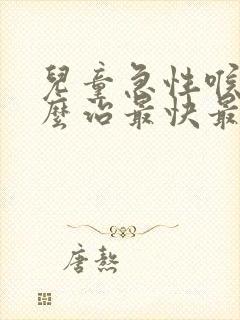 兒童急性喉
麼治最快最
唐熬